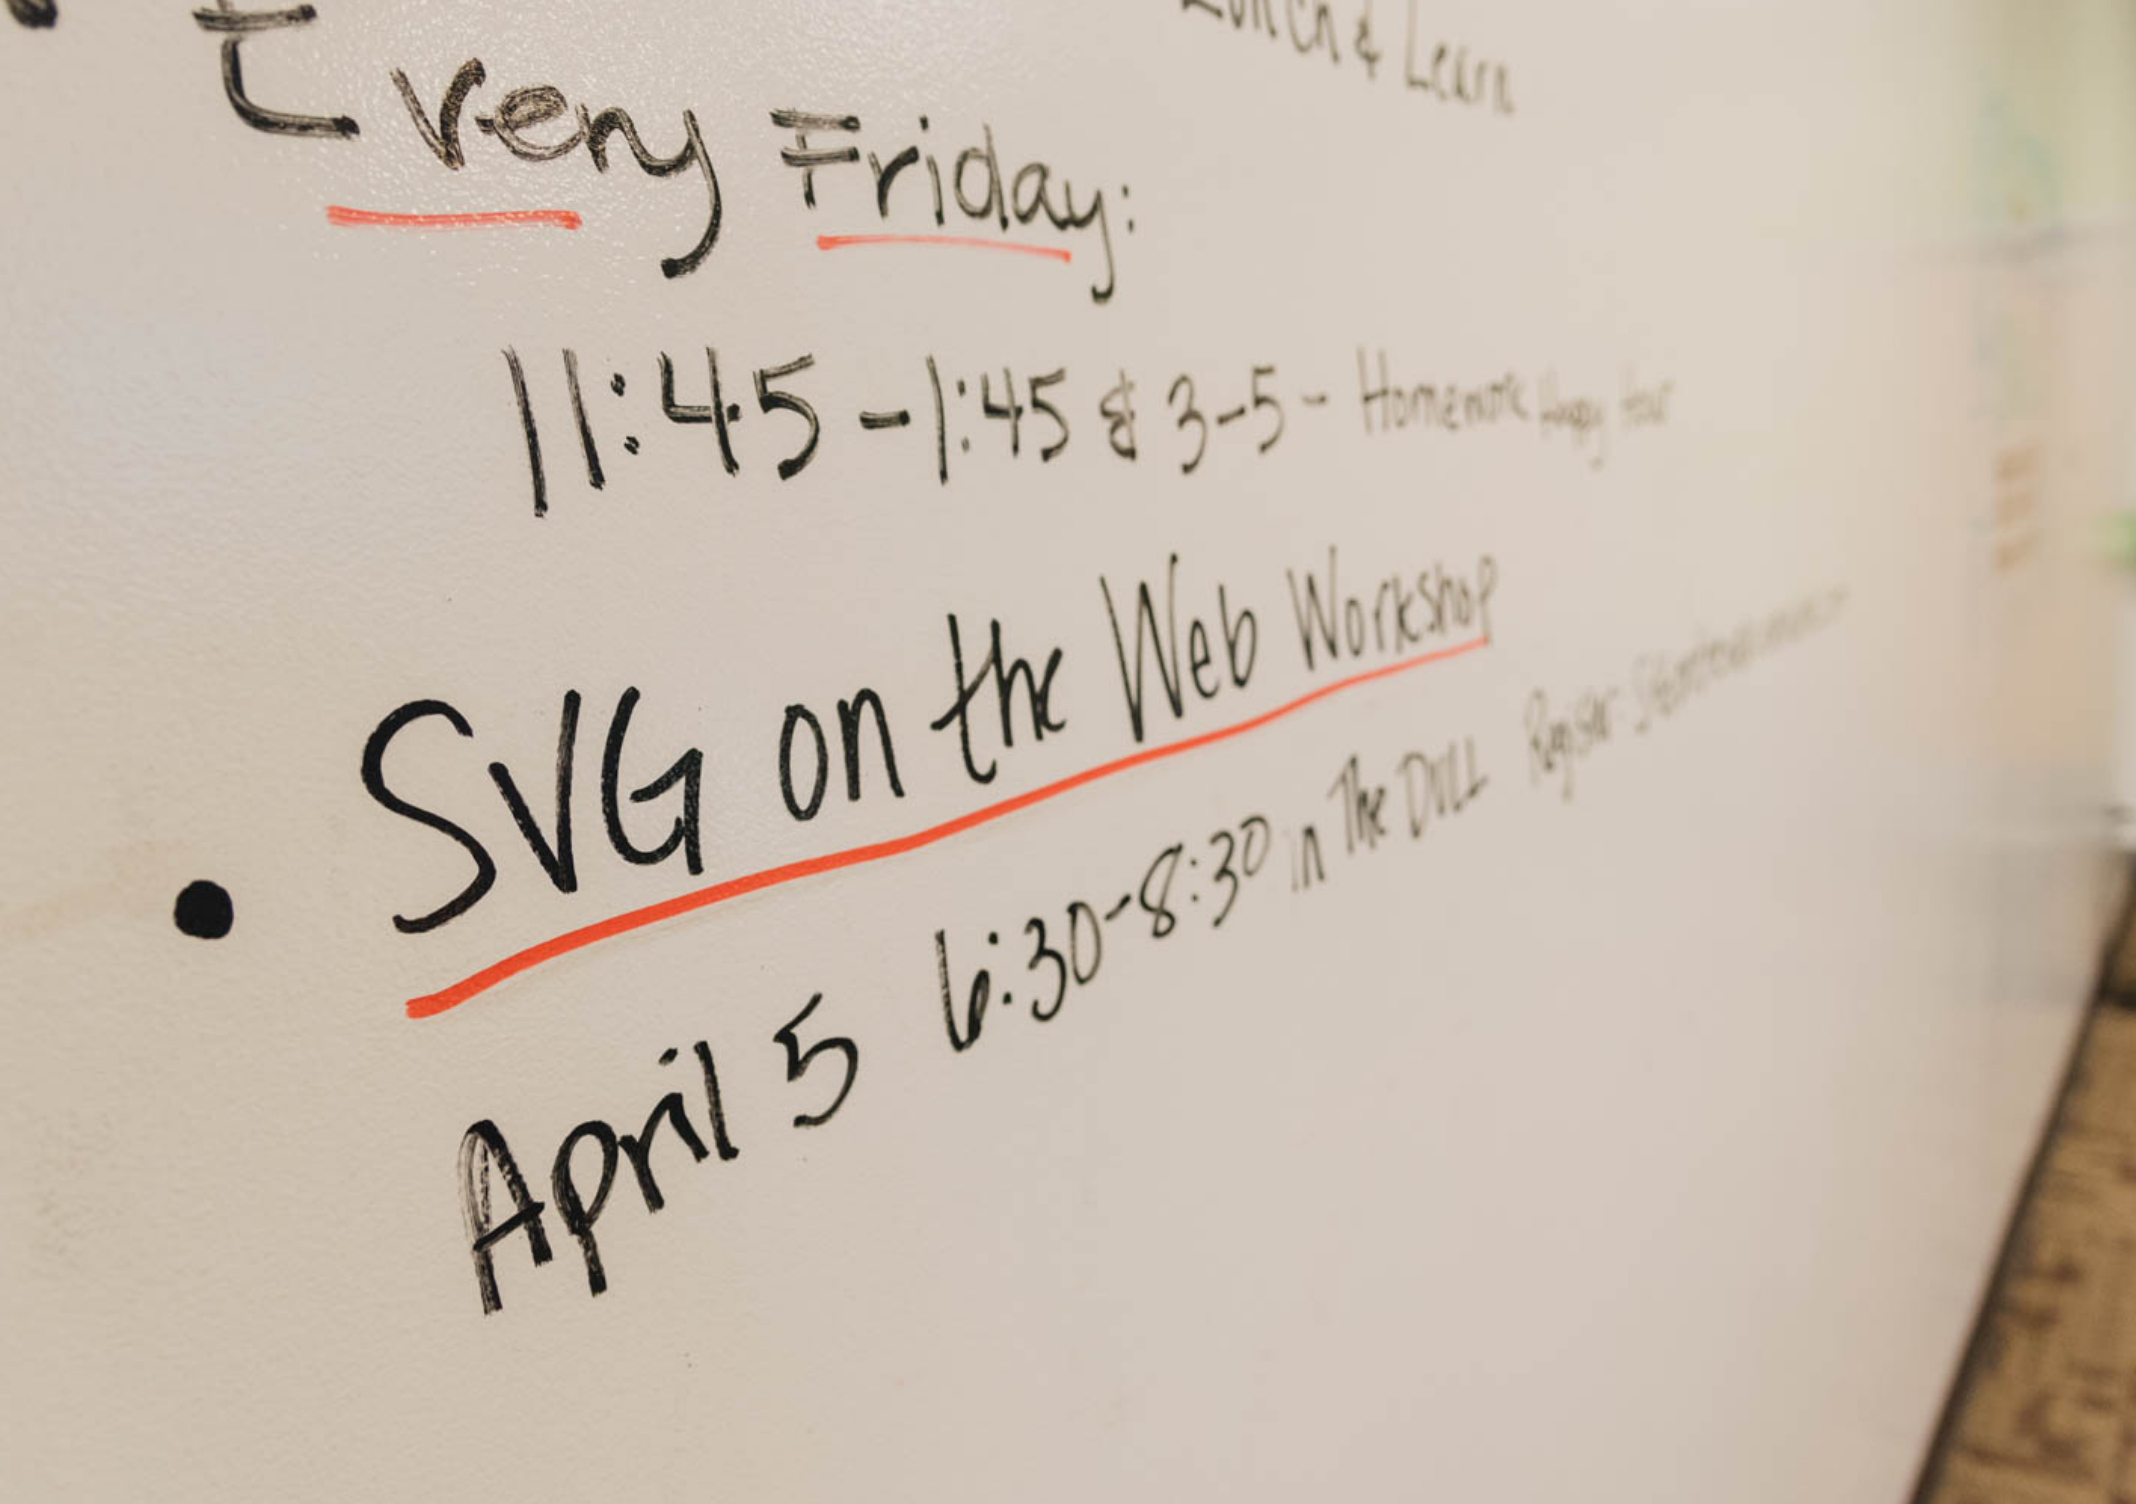 Lunch & Learn
Every Friday:
11:45-1:45 & 3-5 - Homework Happy Hour
• SVG on the Web Workshop
April 5 6:30-8:30 in The DVLL Register: